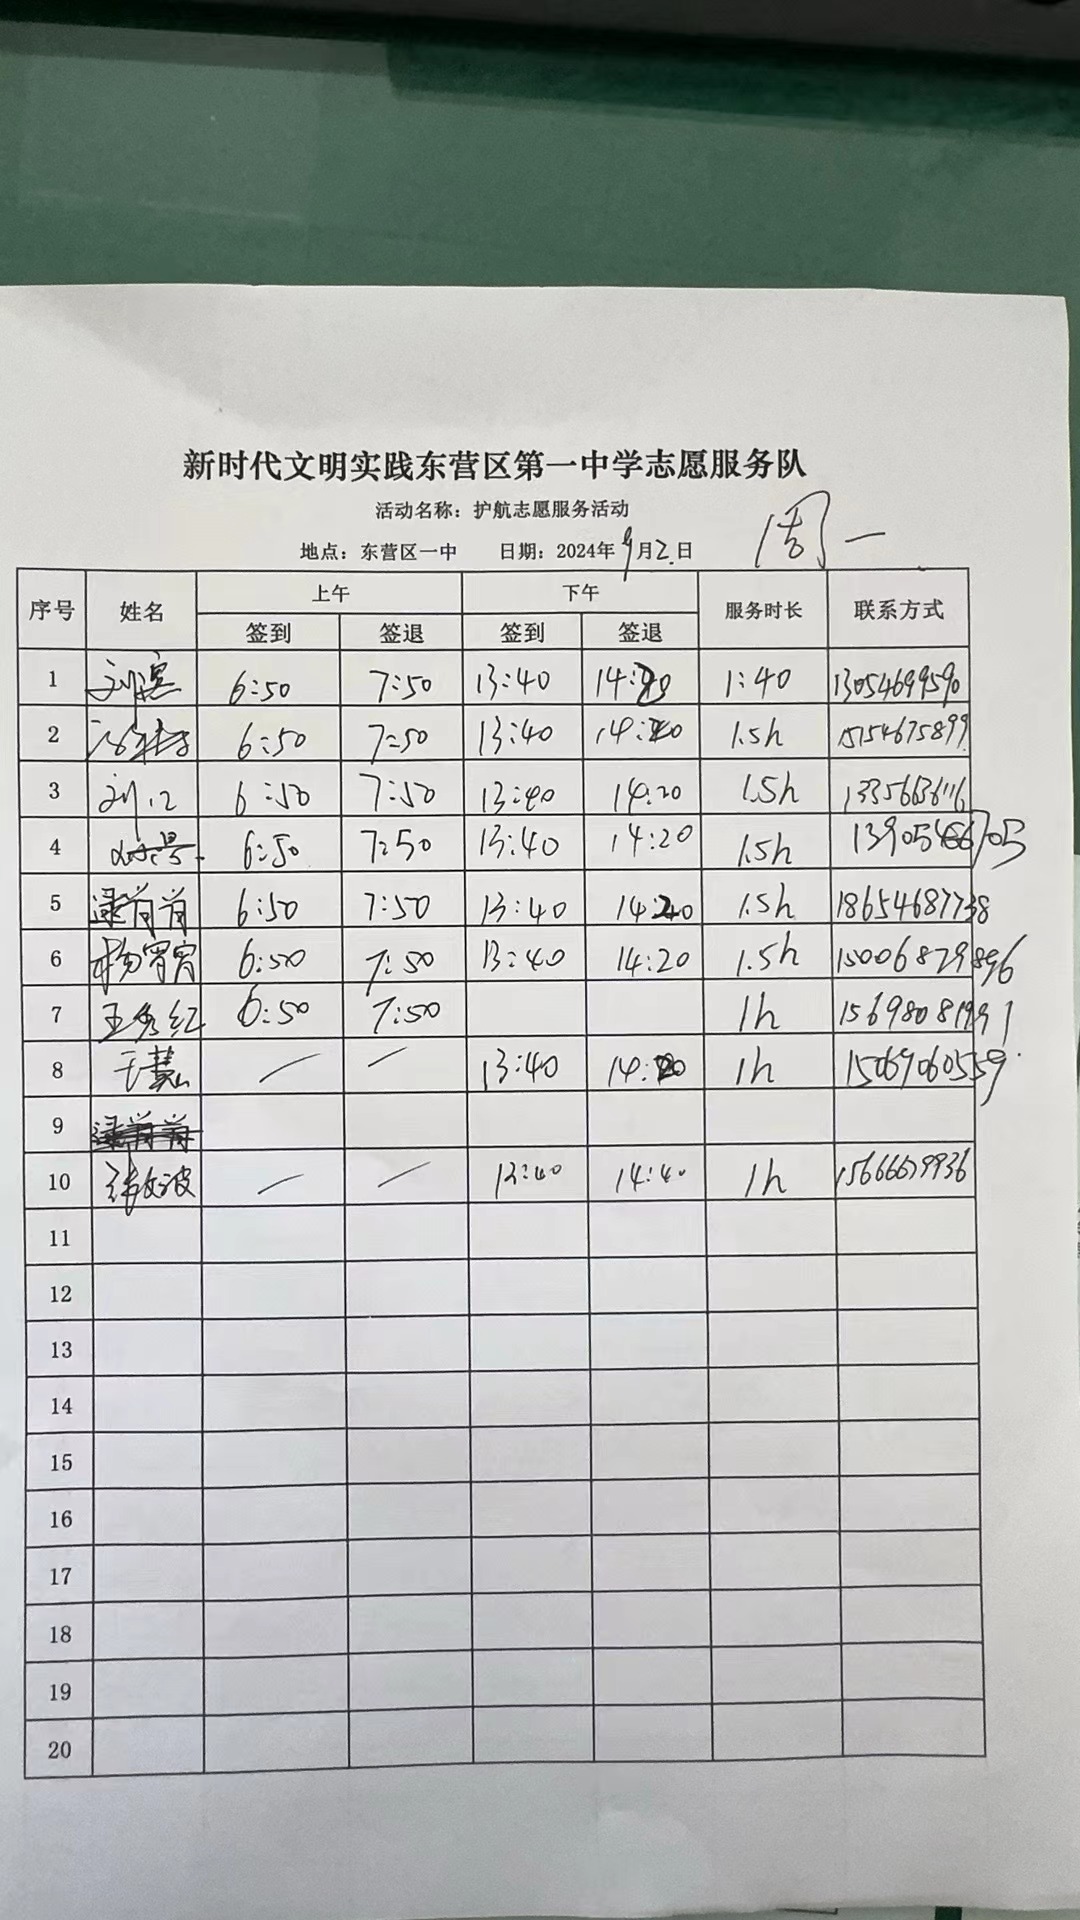 新时代文明实践东营区第一中学志愿服务队
活动名称：护航志愿服务活动
地点：东营区一中 日期：2024年9月2日 周一
序号 姓名 上午 下午 服务时长 联系方式
签到 签退 签到 签退
1 刘滨 6:50 7:50 13:40 14:20 1:40 13054699590
2 6:50 7:50 13:40 14:20 1.5h 15154675899
3 6:50 7:50 13:40 14:20 1.5h 13356636116
4 6:50 7:50 13:40 14:20 1.5h
5 6:50 7:50 13:40 14:20 1.5h 18654687738
6 杨宵宵 6:50 7:50 13:40 14:20 1.5h 15006829896
7 王秀红 6:50 7:50 1h 15698081991
8 于慧 — — 13:40 14:20 1h 15069060559
9
10 — — 13:40 14:40 1h 15666659936
11
12
13
14
15
16
17
18
19
20